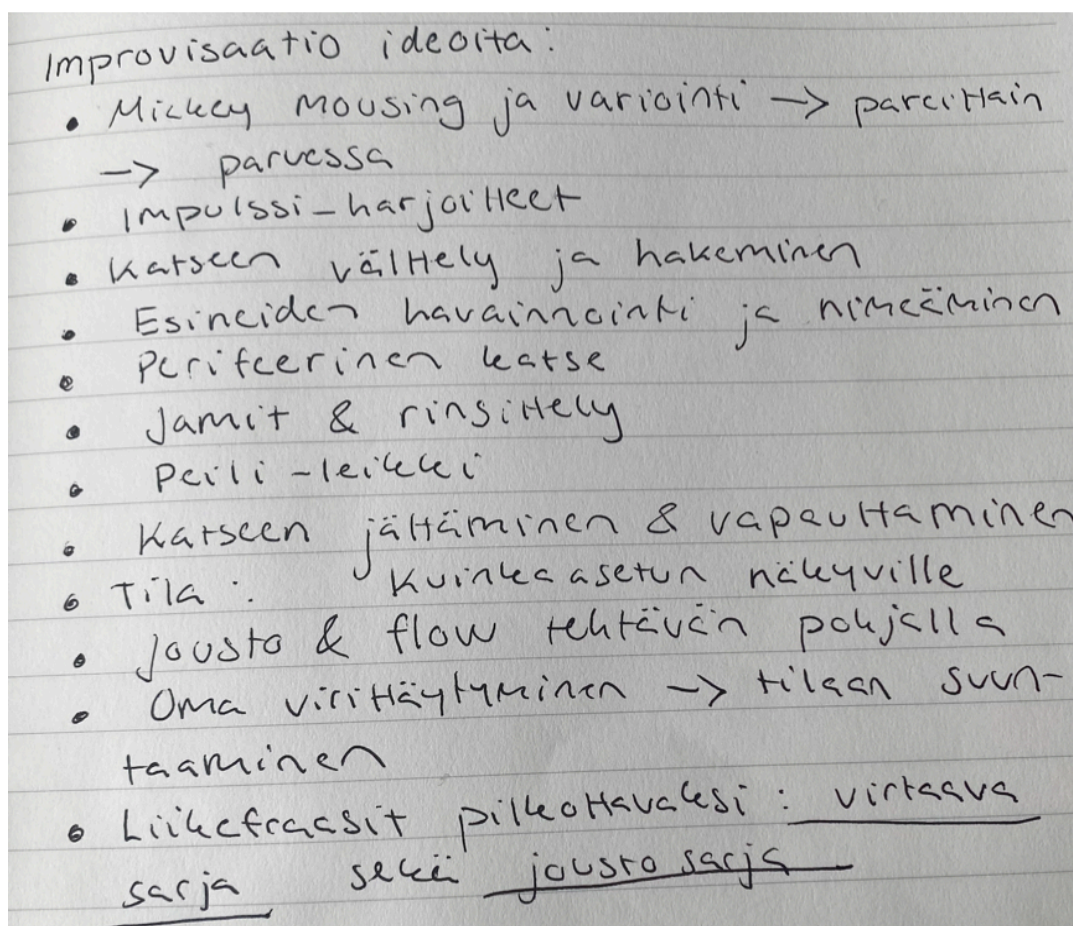 Improvisaatio ideoita:
• Mickey mousing ja variointi → pareittain
→ parvessa
• Impulssi-harjoitteet
• Katseen välttely ja hakeminen
• Esineiden havainnointi ja nimeäminen
• Perifeerinen katse
• Jamit & rinsittely
• Peili-leikki
• Katseen jättäminen & vapauttaminen
• Tila: Kuinka asetun näkyville
• Jousto & flow tehtävän pohjalla
• Oma virittäytyminen → tilaan suun-
taaminen
• Liikefraasit pilkottavaksi: virtaava
sarja sekä jousto sarja